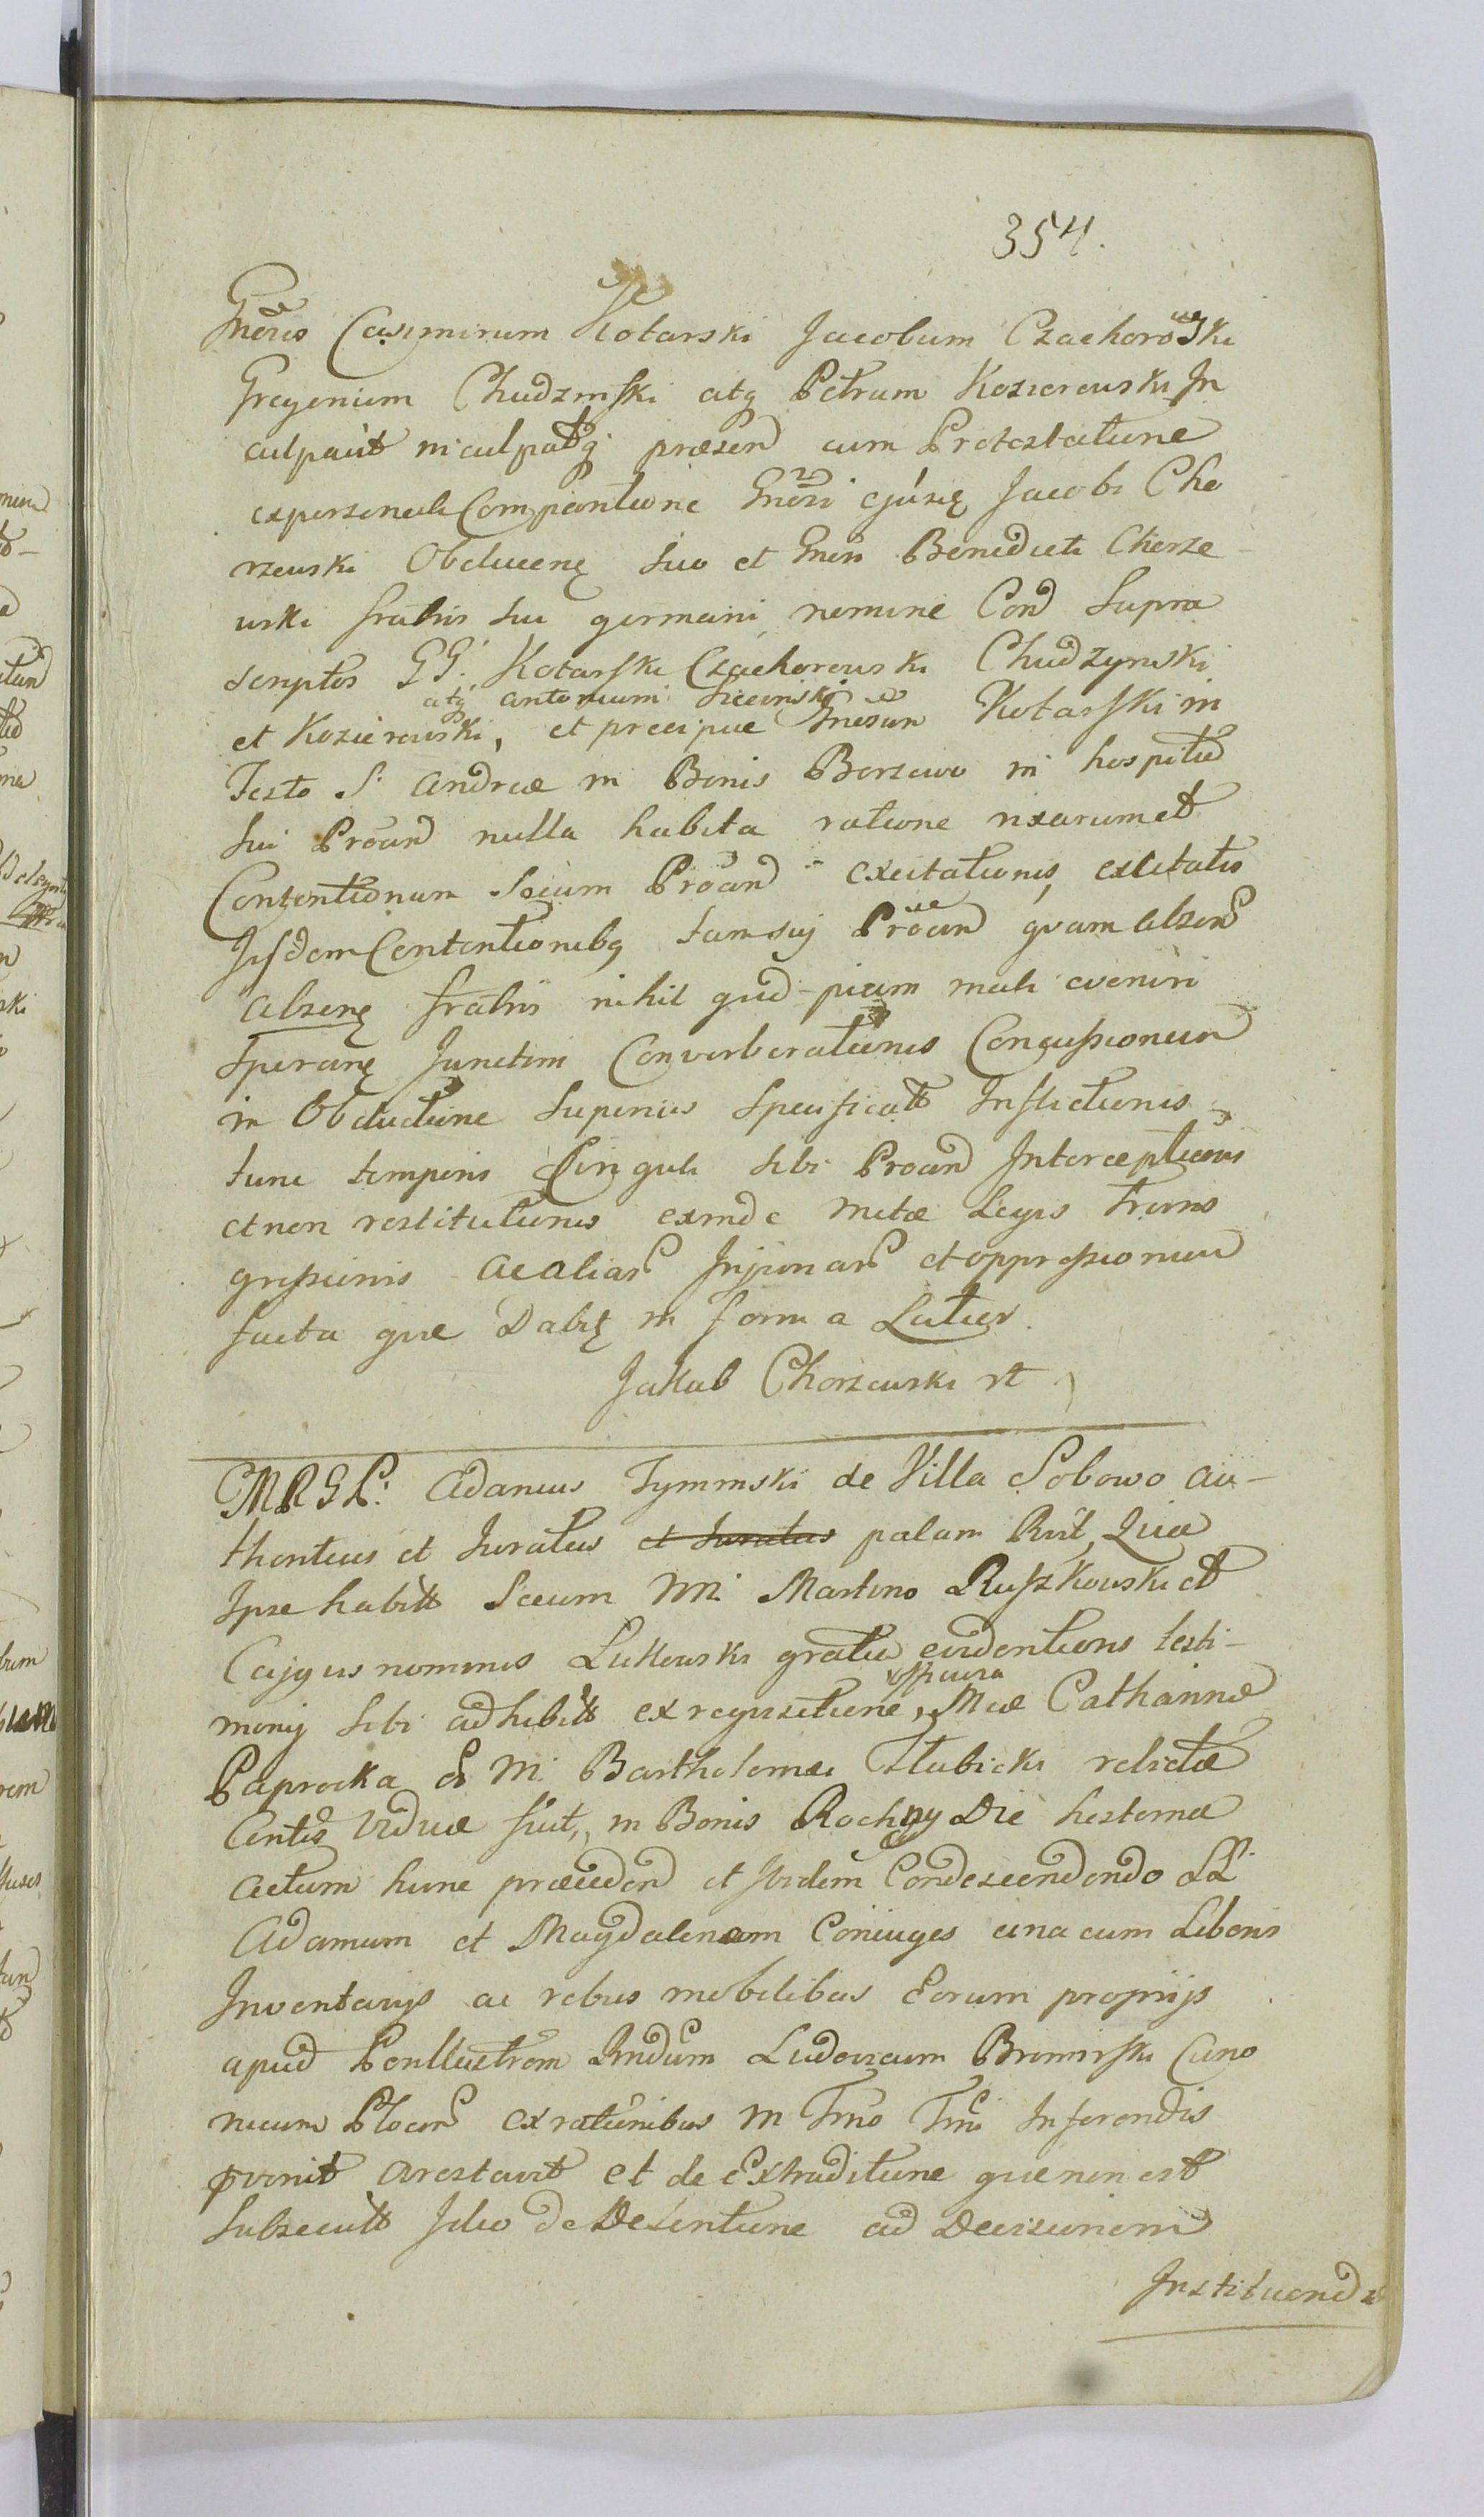 354.
Gnōsos Casimirum Kotarski Jacobum Czachorowski
Gregorium Chudzinski atq Petrum Kozierowski In
culpavit inculpatq praesen cum Protestatione
expersonali Comparitione Gnōsi ejusq Jacobi Cho
rzewski Obducenę suo et Gnōsi Benedicti Chorze
wski fratris sui germani nomine Con Supra
scriptos GG. Kotarski Czachorowski Chudzynski
atq antonium Siecinski
et Kozierowski, et precipue Gnōsum Kotarski in
Festo S. Andreae in Bonis Borzewo in hospitio
sui Proān nulla habita ratione rixarum et
Contentionum Secum Proān excitationis, excitatis
Iisdem Contentionibq tam suj Proān quam absen
absenę fratris nihil quid-piam mali eveniri
speranę Junctim Converberationis Concussionum
in Obductione superius specificatt Inflictionis
tunc temporis Cinguli sibi Proān Interceptionis
et non restitutionis exinde metae Legis Trans
gressionis ac aliar Injuriar et oppressionum
facta quae Dabitę in forma Latior.
Jakub Chorzewski rt

MRGL: Adamus Tyminski de Villa Sobowo au-
thenticus et Juratus et Juratus palam Rlt, Quia
Ipse habitt Secum MM. Martino Ruszkowski et
Cajus nominis Lukowski gratia evidentioris testi-
monij sibi adhibitt ex requisitione, Mae Catharinae
Paprocka M. Bartholomaei Słubicki relictae
Viduae fuit, in Bonis Rochny Die hesterna
actum hunc praeceden et ibidem Condescendendo LL
Adamum et Magdalenam Coniuges una cum Liberis
Inventarijs ac rebus mobilibus Eorum proprijs
apud Perillustrem Rndum Ludovicum Bromirski Cano
nicum Plocen ex rationibus in Tmo Tmi Inferendis
arestavit et de Extraditione quae non est
Subsecutt Ideo de Detentione ad Decisionem
Instituend